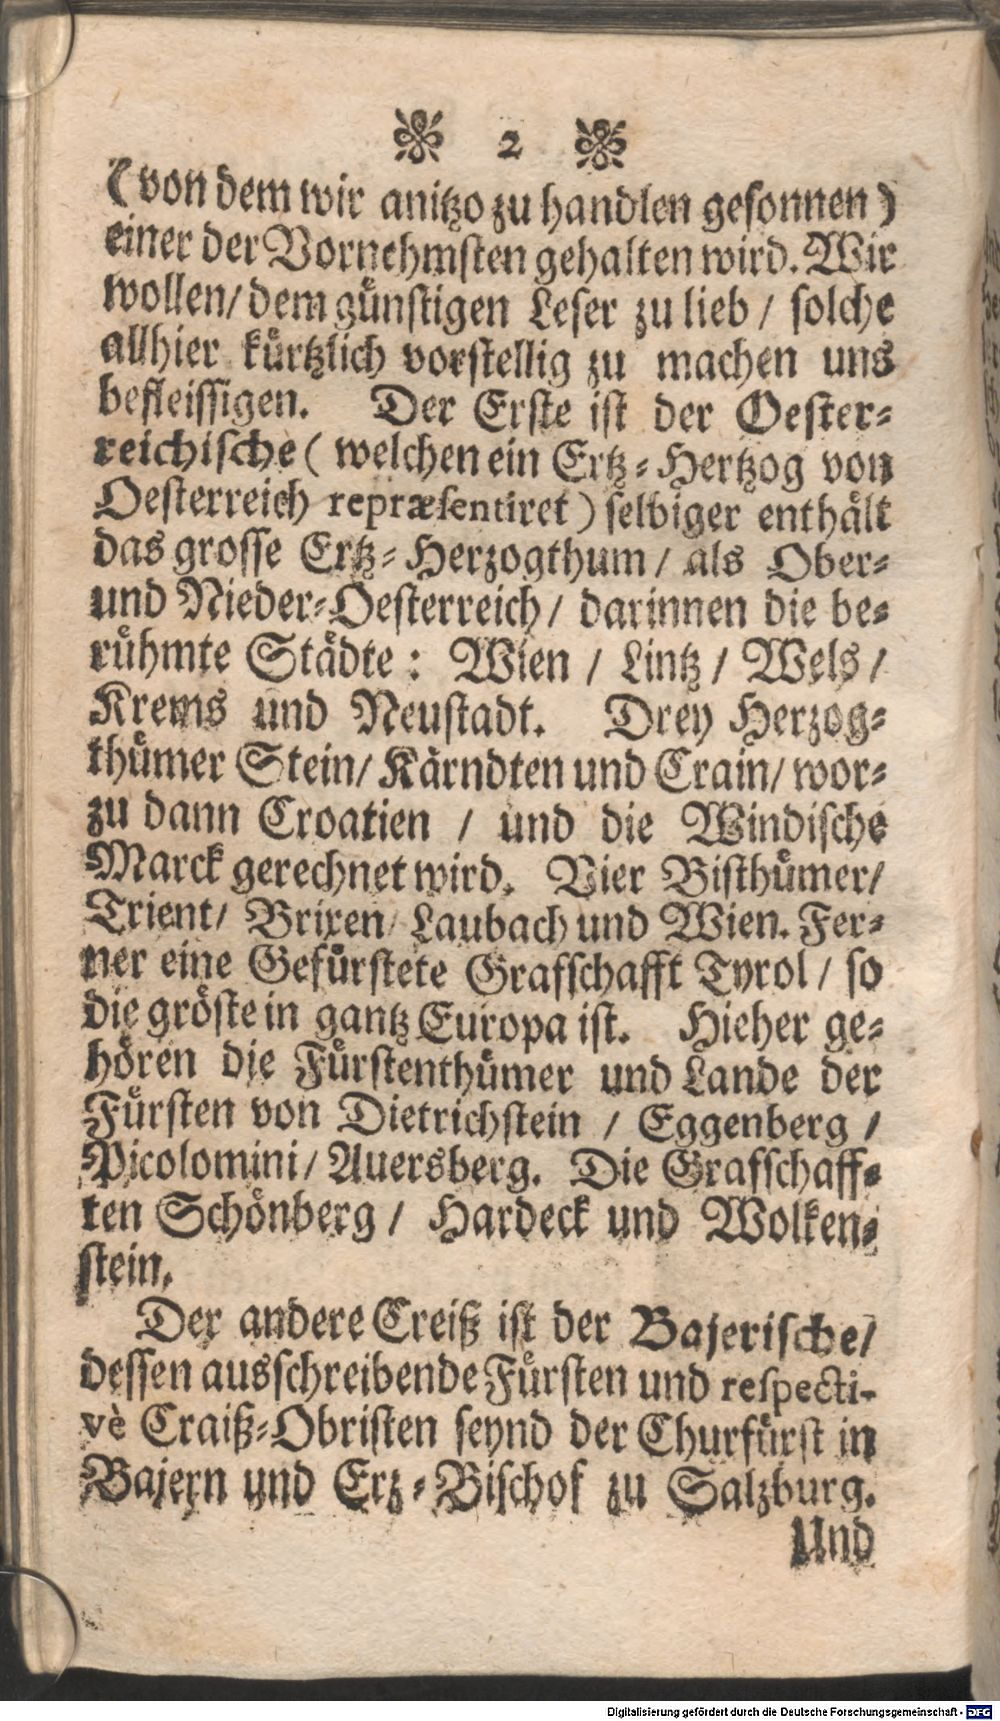 2
(von dem wir anitzo zu handlen gesonnen)
einer der Vornehmsten gehalten wird. Wir
wollen/ dem günstigen Leser zu lieb / solche
allhier kürtzlich vorstellig zu machen uns
befleissigen. Der Erste ist der Oester-
reichische ( welchen ein Ertz-Hertzog von
Oesterreich repræsentiret ) selbiger enthält
das grosse Ertz-Herzogthum / als Ober-
und Nieder-Oesterreich / darinnen die be-
rühmte Städte : Wien / Lintz / Wels /
Krems und Neustadt. Drey Herzog-
thümer Stein/ Kärndten und Crain/ wor-
zu dann Croatien / und die Windische
Marck gerechnet wird. Vier Bisthümer/
Trient/ Brixen/ Laubach und Wien. Fer-
ner eine Gefürstete Grafschafft Tyrol / so
die gröste in gantz Europa ist. Hieher ge-
hören die Fürstenthümer und Lande der
Fürsten von Dietrichstein / Eggenberg /
Picolomini/ Auersberg. Die Grafschaff-
ten Schönberg / Hardeck und Wolken-
stein.
Der andere Creiß ist der Bajerische/
dessen ausschreibende Fürsten und respecti-
vè Craiß-Obristen seynd der Churfürst in
Bajern und Erz-Bischof zu Salzburg.
Und
Digitalisierung gefördert durch die Deutsche Forschungsgemeinschaft - DFG